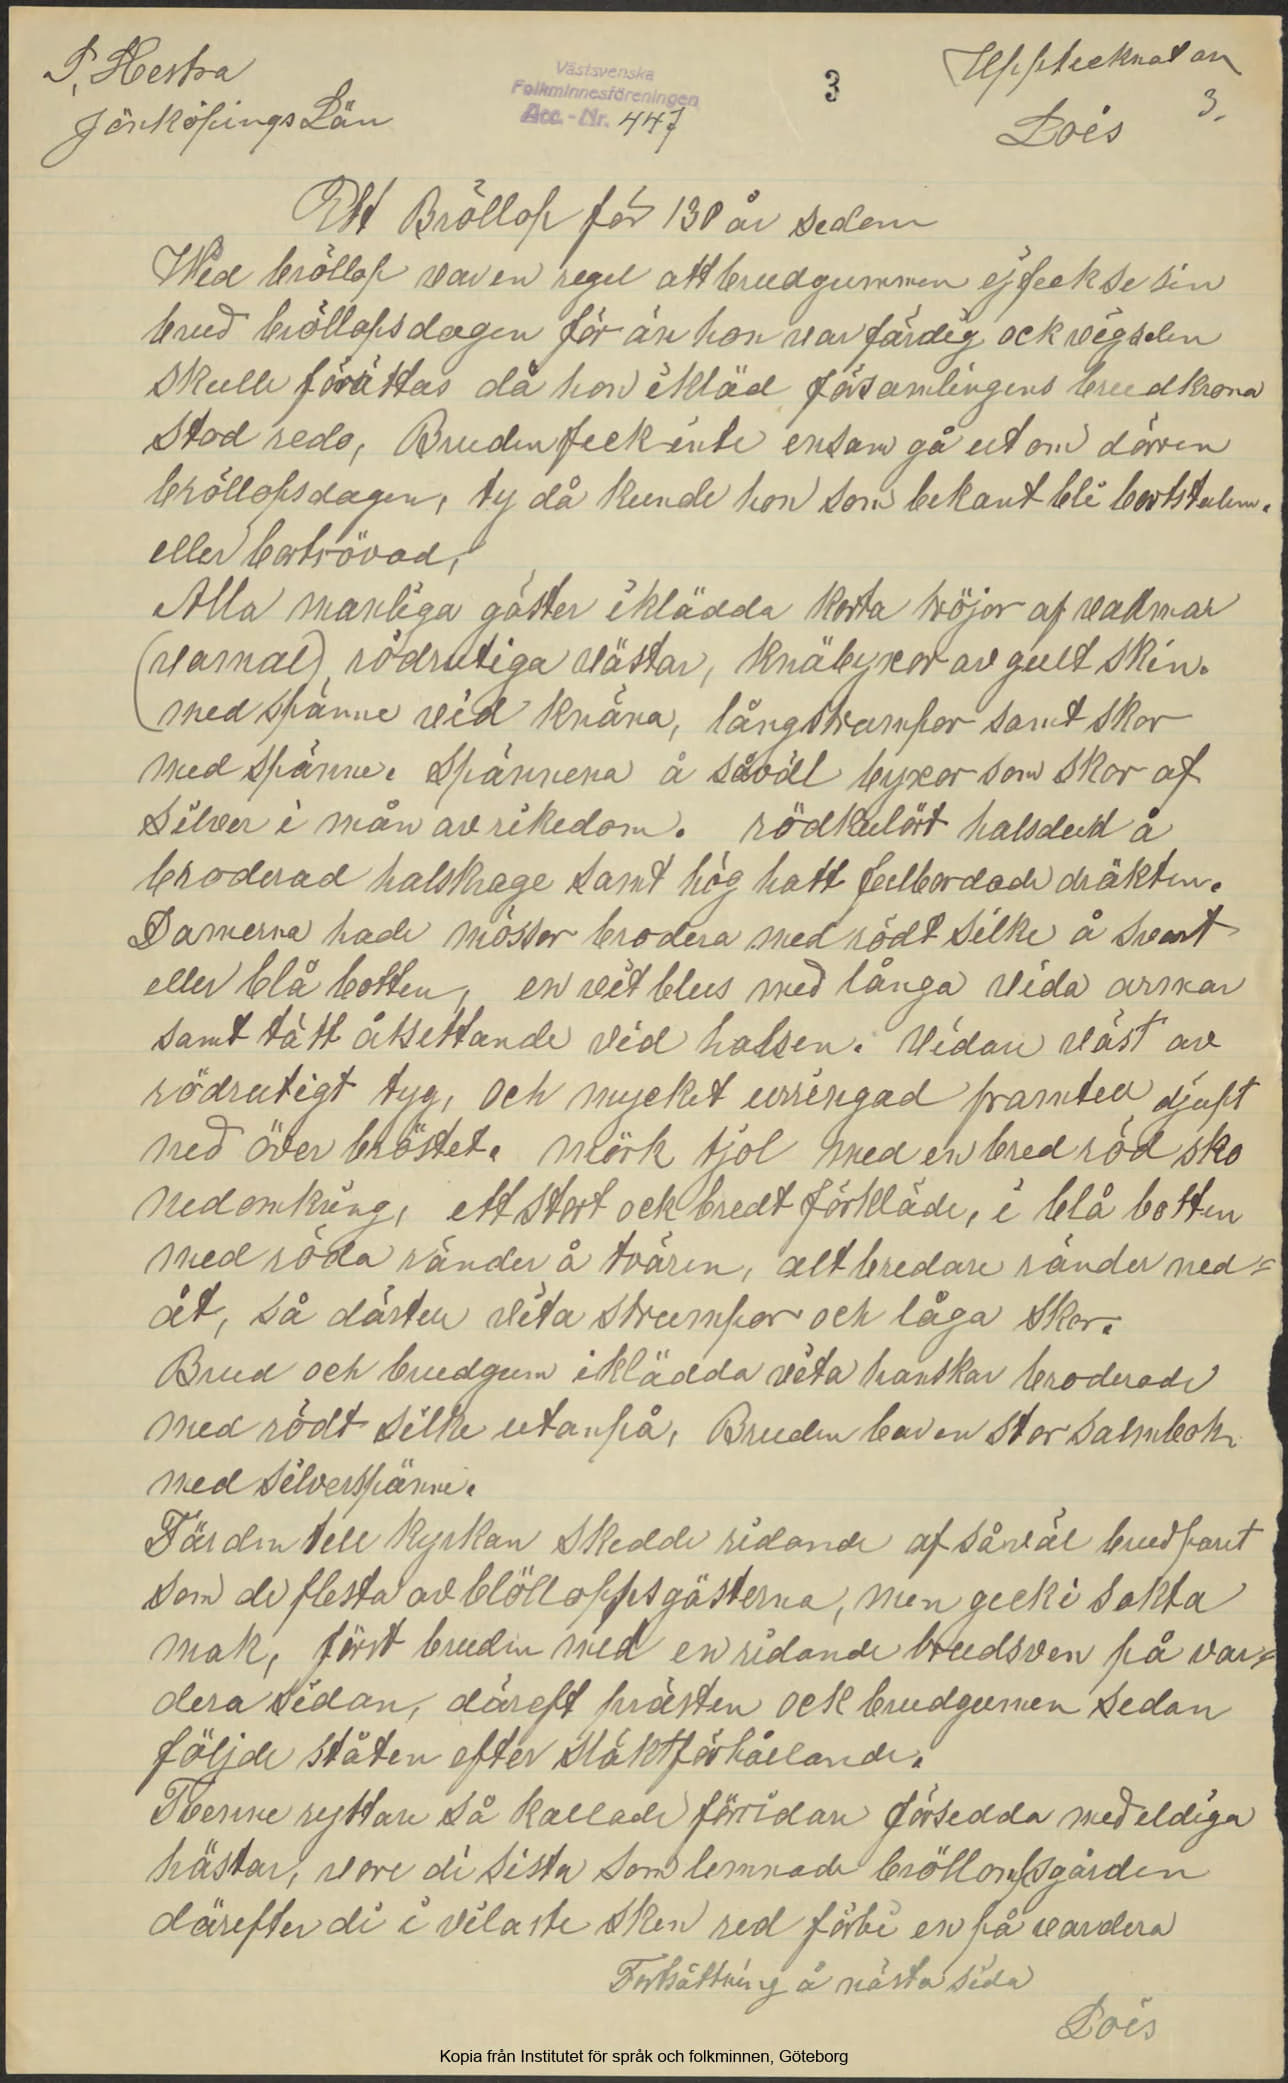 S. Hestra
Jönköpings Län
Västsvenska
Folkminnesföreningen
Acc. - Nr. 447
3
Upptecknat av
Lois
3.
Ett Bröllop för 130 år sedan
Wed bröllop var en regel att brudgummen ej feck se sin
brud bröllopsdagen för än hon var färdig ock vigseln
skulle förättas då hon ikläd församlingens brudkrona
stod redo, Bruden feck inte ensam gå ut om dörren
bröllopsdagen, ty då kunde hon som bekant bli bortstulen.
eller bortrövad,
Alla manliga gäster iklädda korta tröjor af valmar
(vamal), rödrutiga västar, knäbyxor av gult skin.
med spänne vid knäna, långstrumpor samt skor
med spänne. Spännena å såväl byxor som skor af
silver i mån av rikedom. rödkulört halsduk å
broderad halskrage samt hög hatt fulbordade dräkten.
Damerna hade mössor brodera med rödt silke å svart
eller blå botten, en vit blus med långa vida armar
samt tätt åtsittande vid halsen. Vidare väst av
rödrutigt tyg, och mycket urringad framtill djupt
ned över bröstet. mörk kjol med en bred röd sko
nedomkring, ett stort ock bredt förkläde, i blå botten
med röda ränder å tvären, alt bredare ränder ned=
åt, så därtill vita strumpor och låga skor.
Brud och brudgum iklädda vita hanskar broderade
med rödt silke utanpå, Bruden bar en stor salmbok
med silverspänne.
Färden till kyrkan skedde ridande af såväl brudparet
som de flesta av blölloppsgästerna, men geck i sakta
mak, först bruden med en ridande brudsven på var=
dera sidan, däreft prästen ock brudgumen sedan
följde ståten efter släktförhållande.
Tvenne ryttare så kallade förridare försedda med eldiga
hästar, vore di sista som lemnade bröllopsgården
därefter di i vilaste sken red förbi en på vardera
Fortsättning å nästa sida
Lois
Kopia från Institutet för språk och folkminnen, Göteborg